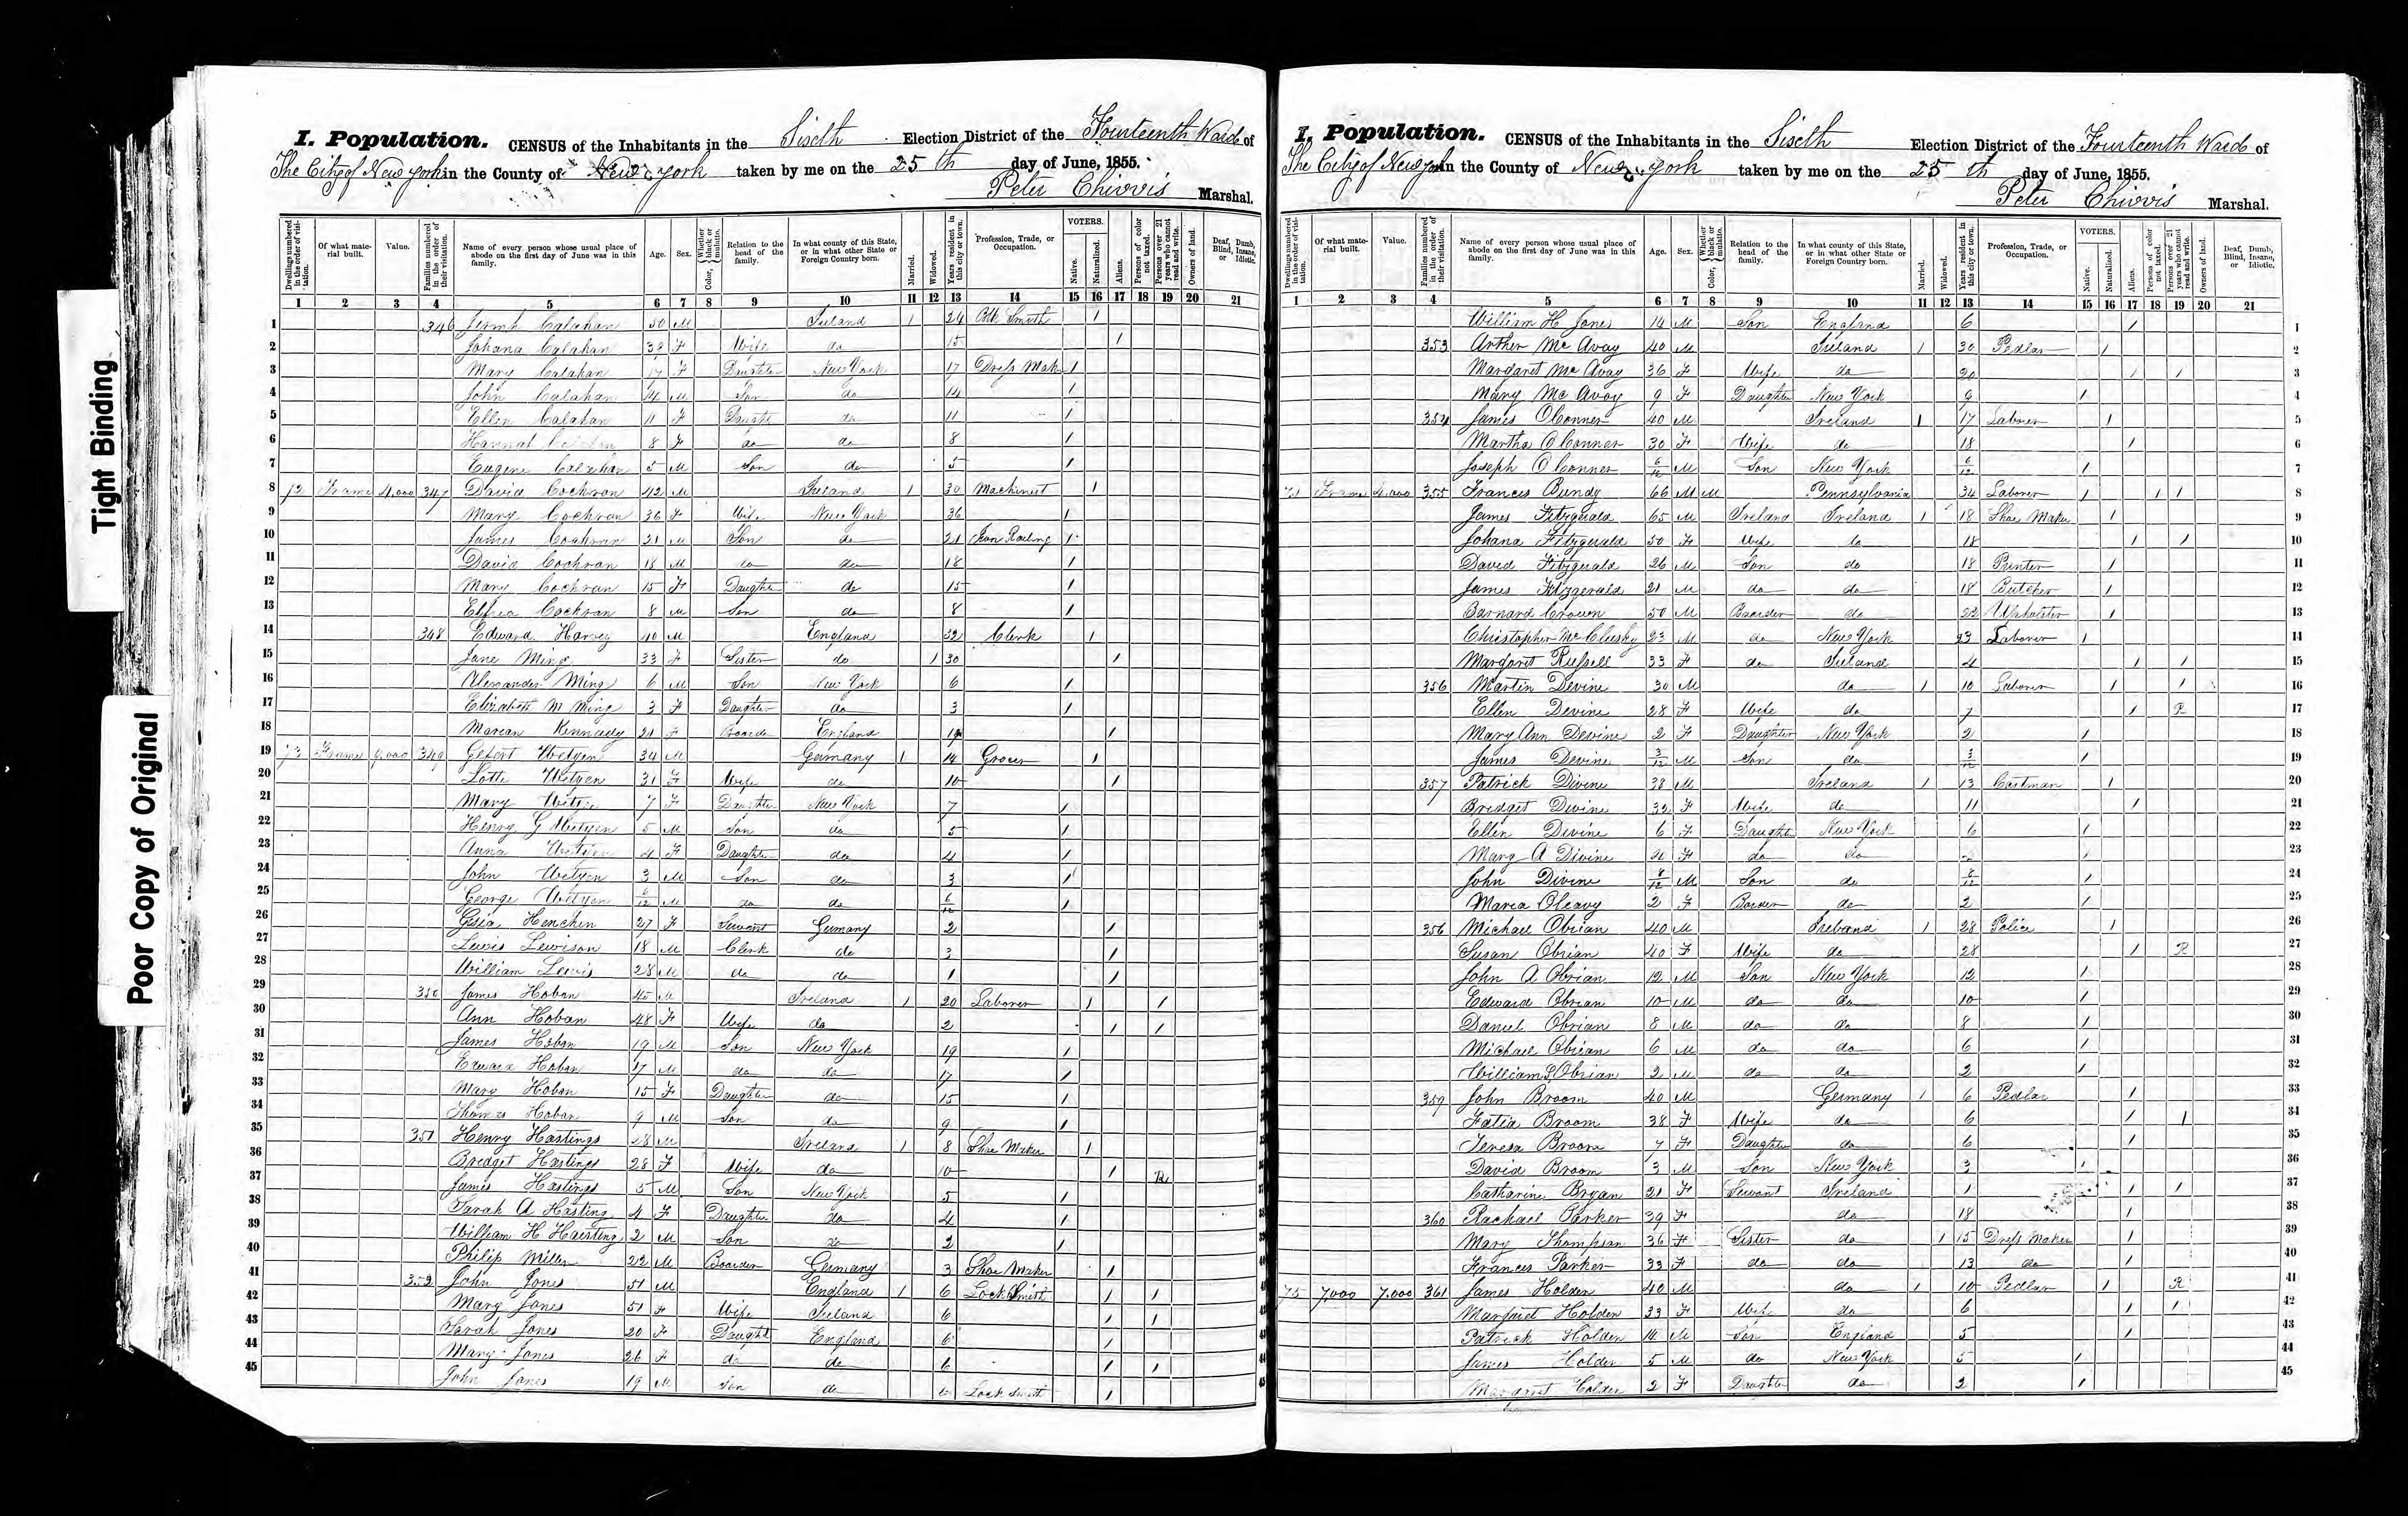 Tight Binding
Poor Copy of Original
I. Population. CENSUS of the Inhabitants in the Sixth Election District of the Fourteenth Ward of
The City of New York in the County of New York taken by me on the 25th day of June, 1855.
Peter Marshal.
Dwellings numbered in the order of visitation. Of what material built. Value. Families numbered in the order of their visitation. Name of every person whose usual place of abode on the first day of June was in this family. Age. Sex. Color, Whether black or mulatto. Relation to the head of the family. In what county of this State, or in what other State or Foreign Country born. Married. Widowed. Years resident in this city or town. Profession, Trade, or Occupation. VOTERS. Native. Naturalized. Aliens. Persons of color not taxed. Persons over 21 years who cannot read and write. Owners of land. Deaf, Dumb, Blind, Insane, or Idiotic.
1 2 3 4 5 6 7 8 9 10 11 12 13 14 15 16 17 18 19 20 21
1 346 Calahan 50 M Ireland 1 24 Blk Smith 1
2 Johana Calahan 38 F Wife do 15 1
3 Mary Calahan 17 F Daughter New York 17 Dress Mak 1
4 John Calahan 14 M Son do 14 1
5 Ellen Calahan 11 F Daught do 11 1
6 Hannah 8 F do do 8 1
7 Eugene Calahan 5 M Son do 5 1
8 72 Frame 4,000 347 David Cochran 42 M Ireland 1 30 Machinest 1
9 Mary Cochran 36 F Wife New York 36 1
10 James Cochran 21 M Son do 21 1
11 David Cochran 18 M do do 18 1
12 Mary Cochran 15 F Daughter do 15 1
13 Cochran 8 M Son do 8 1
14 348 Edward Harvey 40 M England 32 Clerk 1
15 Jane Ming 33 F Sister do 1 30 1
16 Alexander Ming 6 M Son New York 6 1
17 Elizabeth M Ming 3 F Daughter do 3 1
18 Marian Kenneday 21 F Boarder England 1
19 73 Frame 9,000 349 34 M Germany 1 14 Grocer 1
20 Lotte 31 F Wife do 10 1
21 Mary 7 F Daughter New York 7 1
22 Henry G 5 M Son do 5 1
23 Anna 4 F Daughter do 4 1
24 John 3 M Son do 3 1
25 George 6/12 M do do 6/12 1
26 Henchen 27 F Servant Germany 2 1
27 Lewis Lewison 18 M Clerk do 3 1
28 William Lewis 28 M do do 1 1
29 350 James Hoban 45 M Ireland 1 20 Laborer 1 1
30 Ann Hoban 48 F Wife do 2 1 1
31 James Hoban 19 M Son New York 19 1
32 Edward Hoban 17 M do do 17 1
33 Mary Hoban 15 F Daughter do 15 1
34 Thomas Hoban 9 M Son do 9 1
35 351 Henry Hastings 28 M Ireland 1 8 Shoe Maker 1
36 Bredget Hastings 28 F Wife do 10 1 R
37 James Hastings 5 M Son New York 5 1
38 Sarah A Hasting 4 F Daughter do 4 1
39 William H Haisting 2 M Son do 2 1
40 Philip Miller 22 M Boarder Germany 3 Shoe Maker 1
41 352 John Jones 51 M England 1 6 Lock Smith 1 1
42 Mary Jones 51 F Wife Ireland 6 1 1
43 Sarah Jones 20 F Daught England 6 1
44 Mary Jones 26 F do do 6 1 1
45 John Jones 19 M Son do 6 Lock Smith 1
I. Population. CENSUS of the Inhabitants in the Sixth Election District of the Fourteenth Ward of
The City of New York in the County of New York taken by me on the 25th day of June, 1855.
Peter Marshal.
Dwellings numbered in the order of visitation. Of what material built. Value. Families numbered in the order of their visitation. Name of every person whose usual place of abode on the first day of June was in this family. Age. Sex. Color, Whether black or mulatto. Relation to the head of the family. In what county of this State, or in what other State or Foreign Country born. Married. Widowed. Years resident in this city or town. Profession, Trade, or Occupation. VOTERS. Native. Naturalized. Aliens. Persons of color not taxed. Persons over 21 years who cannot read and write. Owners of land. Deaf, Dumb, Blind, Insane, or Idiotic.
1 2 3 4 5 6 7 8 9 10 11 12 13 14 15 16 17 18 19 20 21
William H Jones 14 M Son England 6 1 1
353 Arther Mc Avoy 40 M Ireland 1 30 Pedlar 1 2
Margaret Mc Avoy 36 F Wife do 20 1 1 3
Mary Mc Avoy 9 F Daughter New York 9 1 4
354 James OConner 40 M Ireland 1 17 Laborer 1 5
Martha OConner 30 F Wife do 18 1 6
Joseph OConner 6/12 M Son New York 6/12 1 7
Frame 4,000 355 Frances Bundy 66 M M Pennsylvania 34 Laborer 1 1 1 8
James Fitzgerald 65 M Ireland Ireland 1 18 Shoe Maker 1 9
Johana Fitzgerald 50 F Wife do 18 1 1 10
David Fitzgerald 26 M Son do 18 Printer 1 11
James Fitzgerald 21 M do do 18 Butcher 1 12
Barnard Crowen 50 M Boarder do 22 Upholster 1 13
Christopher McClusky 23 M do New York 23 Laborer 1 14
Margaret Russell 33 F do Ireland 4 1 1 15
356 Martin Devine 30 M do 1 10 Laborer 1 1 16
Ellen Devine 28 F Wife do 7 1 R 17
Mary Ann Devine 2 F Daughter New York 2 1 18
James Devine 3/12 M Son do 3/12 1 19
357 Patrick Divine 38 M Ireland 1 13 Cartman 1 20
Bredget Divine 32 F Wife do 11 1 21
Ellen Divine 6 F Daught New York 6 1 22
Mary A Divine F do do 1 23
John Divine 8/12 M Son do 8/12 1 24
Maria Oleavy 2 F Boarder do 2 1 25
356 Michael Obrian 40 M Ireland 1 28 Police 1 26
Susan Obrian 40 F Wife do 28 1 R 27
John A Obrian 12 M Son New York 12 1 28
Edward Obrian 10 M do do 10 1 29
Daniel Obrian 8 M do do 8 1 30
Michael Obrian 6 M do do 6 1 31
William Obrian 2 M do do 2 1 32
359 John Broom 40 M Germany 1 6 Pedlar 1 33
Broom 38 F Wife do 6 1 1 34
Teresa Broom 7 F Daughter do 6 1 35
David Broom 3 M Son New York 3 1 36
Catharine Bryan 21 F Servant Ireland 1 1 1 37
360 Rachael Parker 39 F do 18 1 38
Mary Thompson 36 F Sister do 1 15 Dress Maker 1 39
Frances Parker 33 F do do 13 do 1 40
75 7,000 7,000 361 James Holden 40 M do 1 10 Pedlar 1 R 41
Margaret Holden 33 F Wife do 6 1 1 42
Patrick Holden 14 M Son England 5 1 43
James Holden 5 M do New York 5 1 44
Margaret Holden 2 F Daughter do 2 1 45